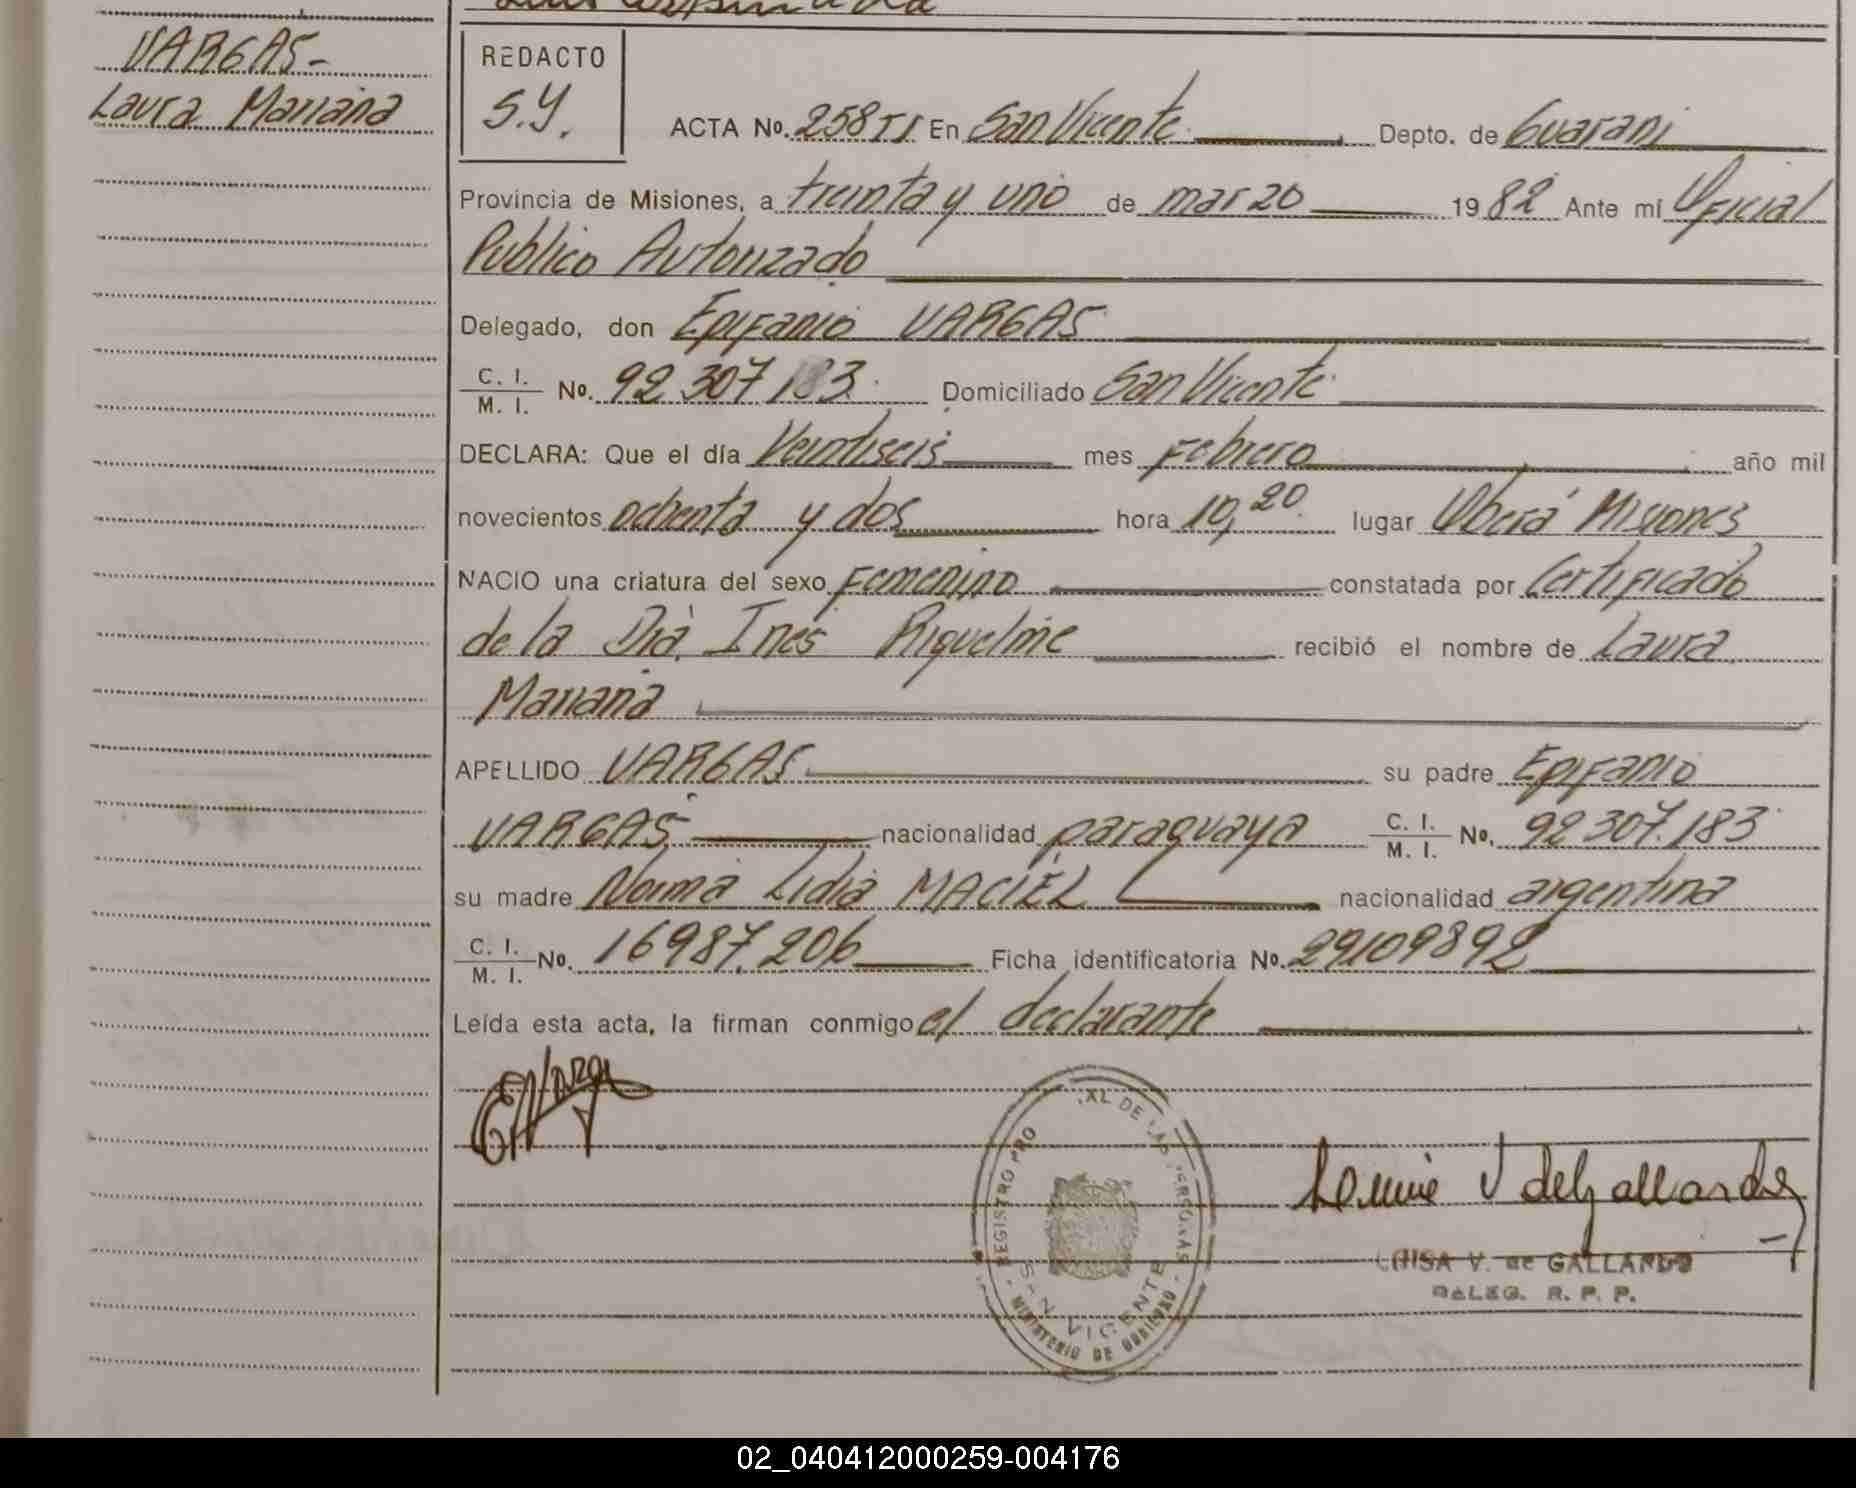 VARGAS-
Laura Mariana
REDACTO
S.Y.
ACTA No. 258 TI En San Vicente Depto. de Guarani
Provincia de Misiones, a treinta y uno de marzo 1982 Ante mí Oficial
Publico Autorizado
Delegado, don Epifanio VARGAS
C. I.
M. I. No. 92.307.183 Domiciliado San Vicente
DECLARA: Que el día Veintiseis mes Febrero año mil
novecientos ochenta y dos hora 10,20 lugar Oberá Misiones
NACIO una criatura del sexo Femenino constatada por Certificado
de la Dra. Ines Riquelme recibió el nombre de Laura
Mariana
APELLIDO VARGAS su padre Epifanio
VARGAS nacionalidad paraguaya C. I.
M. I. No. 92 307.183
su madre Norma Lidia MACIEL nacionalidad argentina
C. I.
M. I. No. 16987.206 Ficha identificatoria No. 29109892
Leída esta acta, la firman conmigo el declarante
EVarga
REGISTRO PRO DE LAS PERSONAS
SAN VICENTE
MINISTERIO DE GOBIERNO
LUISA V. de GALLARDO
DELEG. R. P. P.
02_040412000259-004176